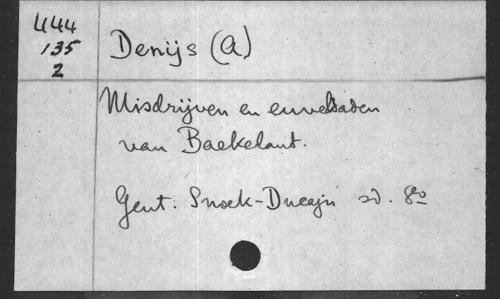 444
135
2
Denijs (A)
Misdrijven en euveldaden
van Baekelant.
Gent. Snoek-Ducaju sd. 8o